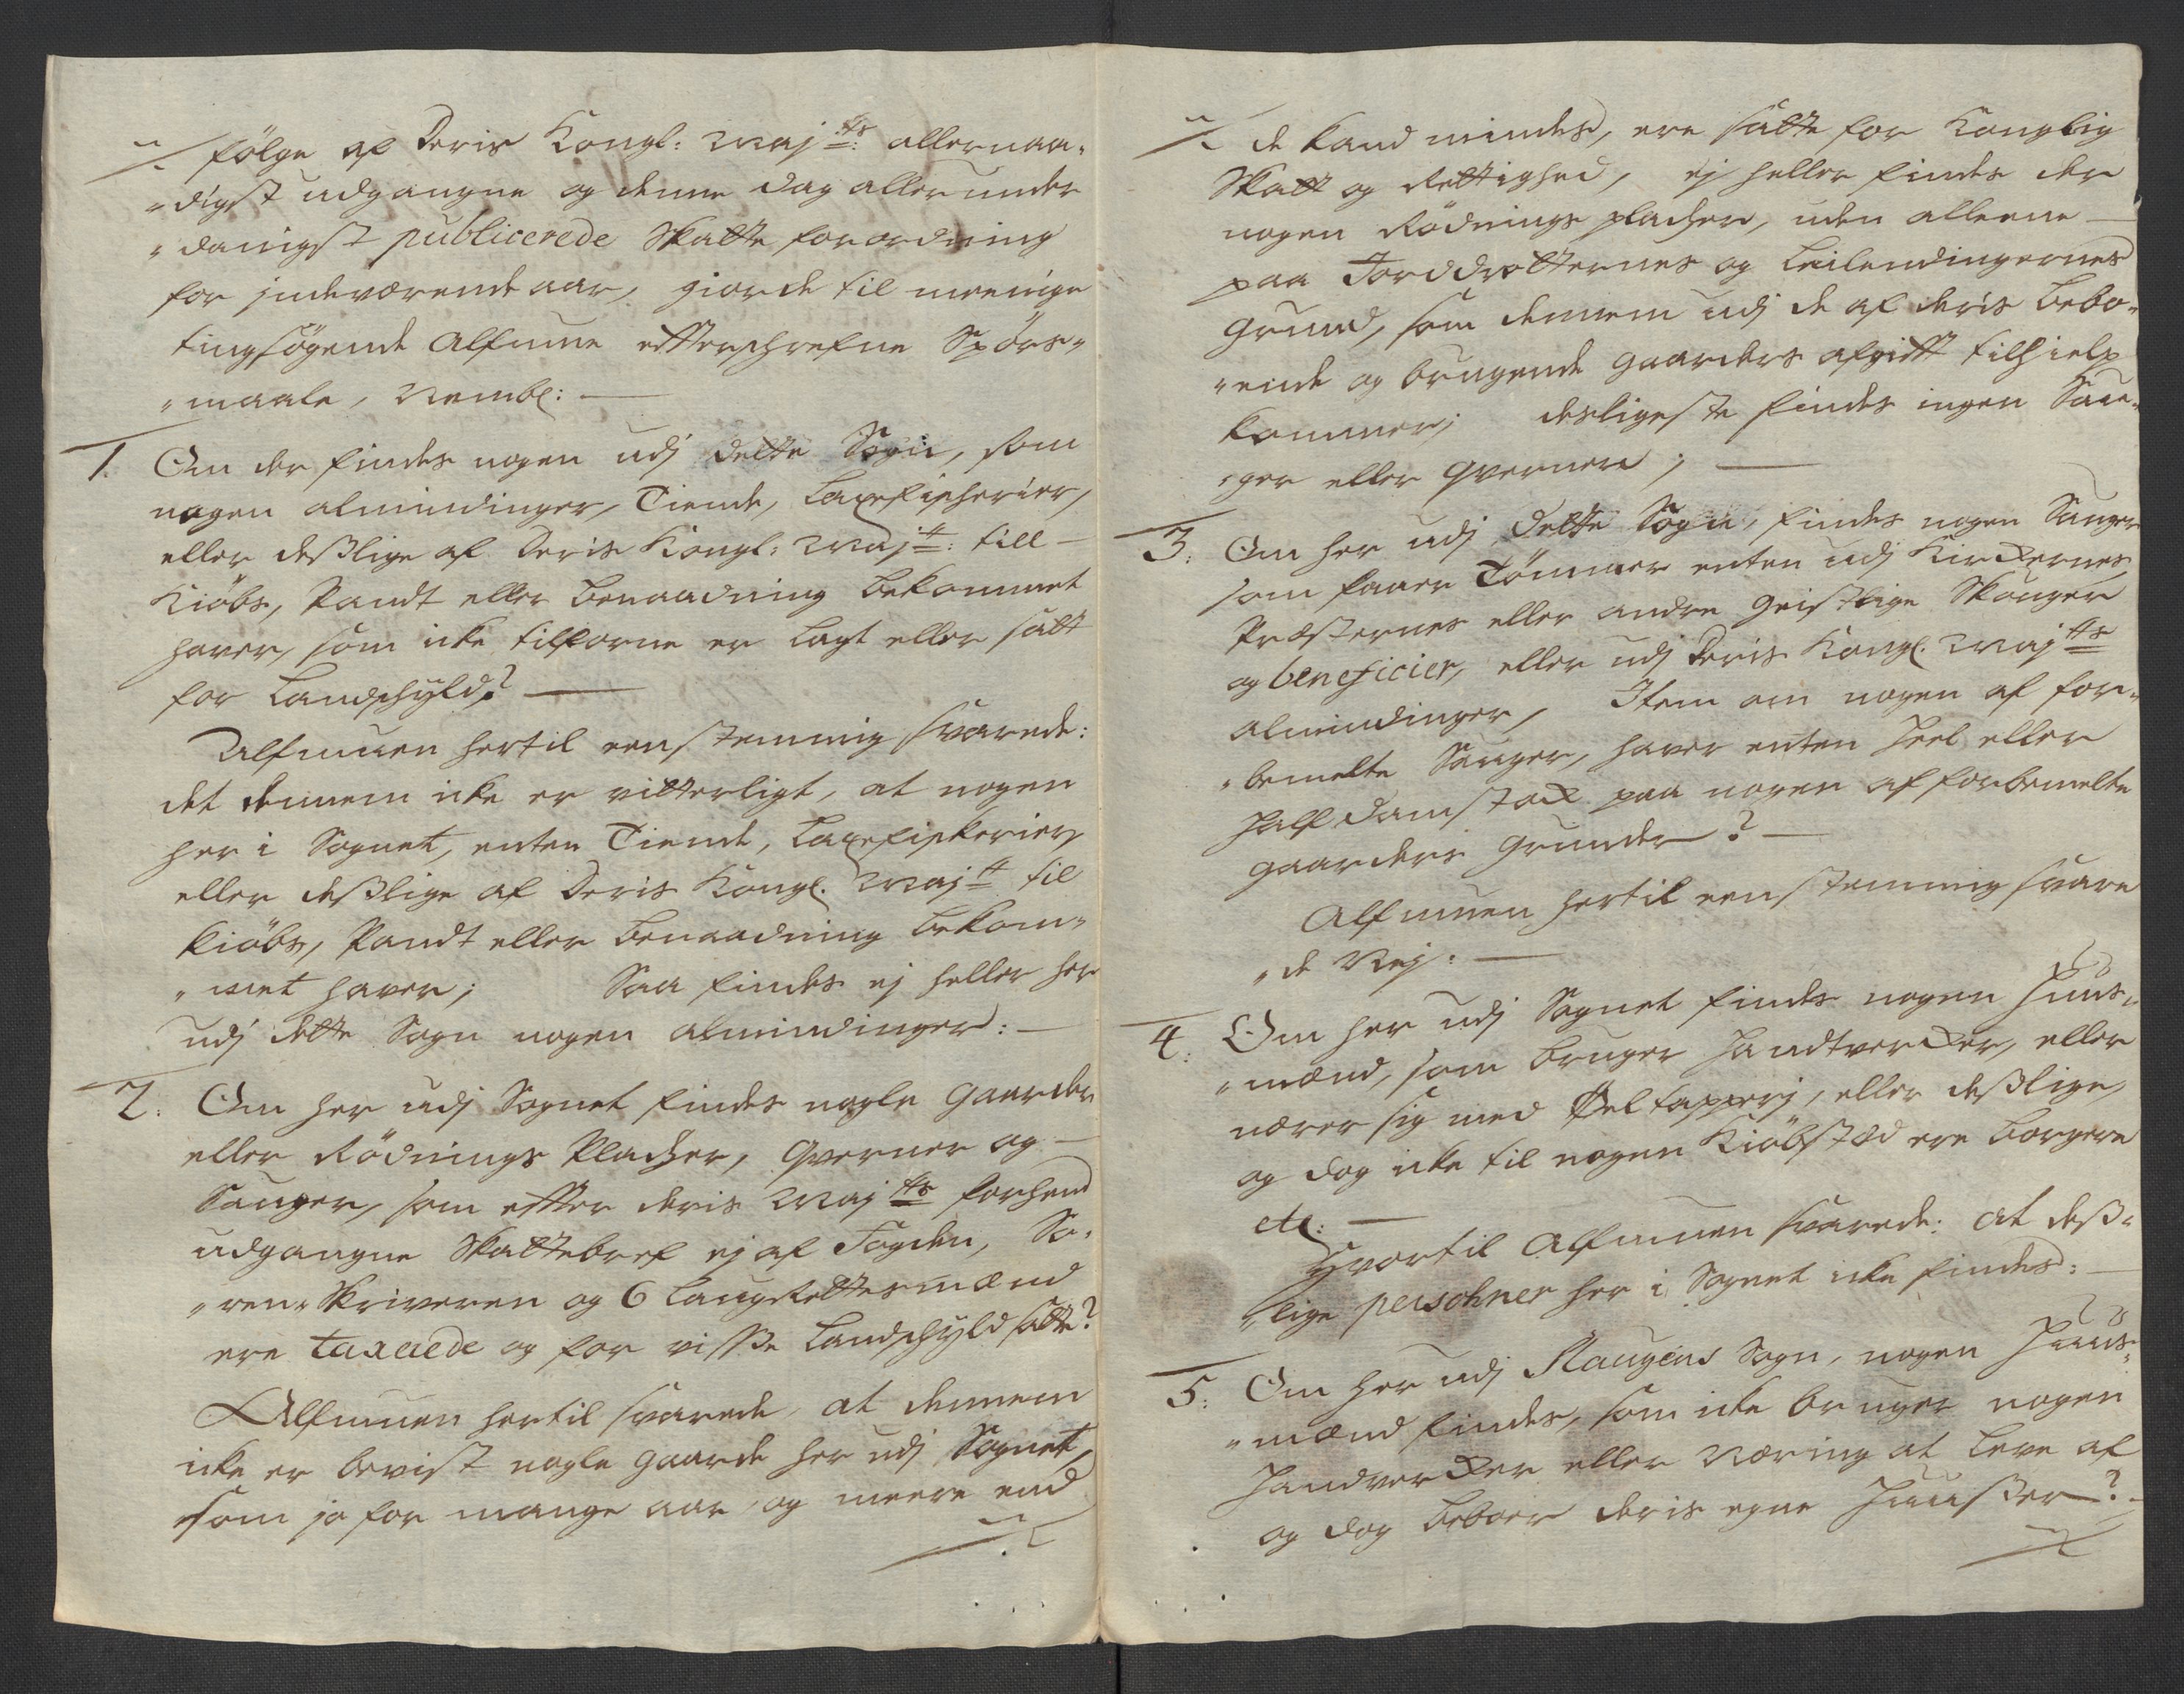 følge af Deris Kongl: Majts: allernaa-
"digst udgangne og denne dag allerunder
"danigst publicerede Skatte forordning
for indeværende aar, giorde til meenige
tingsøgende Almue efterschrefne Spørs-
"maale, Nembl: —
1. Om der findes nogen udj dette Sogn, som
nogen almindinger, Tiende, Laxefischerier,
eller deßlige af Deris Kongl: Majt: till
Kiøbs, Pandt eller benaadning bekommet
haver, som icke tilforne er lagt eller satt
for Landschyld? —
Almuen hertil eenstemmig svarede:
det dennem icke er vitterligt, at nogen
her i Sognet, enten Tiende, Laxefiskerier
eller deßlige af Deris Kongl. Majt til
Kiøbs, Pandt eller benaadning bekom-
"met haver; Saa findes ej heller her
udj dette Sogn nogen almindinger: —
2: Om her udj Sognet findes nogle gaarder
eller Rødnings Pladtzer, qverner og
Sauger, som efter deris Majts forhend
udgangne Skattebref ej af Fogden, So-
"ren-Skriveren og 6 Laugrettesmænd
ere taxerede og for visse Landschyld satte?
Almuen hertil svarede, at dennem
icke er bevist nogle gaarde her udj Sognet,
som jo for mange aar, og meere end
de kand mindes, ere satte for Konglig
Skatt og Rettighed, ej heller findes der
nogen Rødnings pladser, uden alleene
paa Jorddrotternes og Leilendingernes
grund, som dennem udj de af deris bebo-
"ende og brugende gaarders afgift tilhielp
kommer; desligeste findes ingen Sau-
"ger eller qverner; —
3: Om her udj dette Sogn, findes nogen Sauger
som faaer Tømmer enten udj Kirckernes,
Præsternes eller andre geistlige Skouger
og beneficier, eller udj Deris Kongl. Majts
almindinger, Item om nogen af for-
"bemelte Sauger, haver enten heel eller
half damstock paa nogen af forbemelte
gaarders grunder? —
Almuen hertil eenstemmig svare
"de Nej: —
4: Om her udj Sognet findes nogen Huus-
"mænd, som bruger Handtvercker, eller
nærer sig med Øeltapperj, eller deßlige,
og dog icke til nogen Kiøbstæd ere borgere
etc: —
Hvortil Almuen svarede: at deß-
"lige persohner her i Sognet icke findes: —
5: Om her udj Slaugens Sogn, nogen Huus-
"mænd findes, som icke bruger nogen
Handvercker eller Næring at leve af
og dog beboer deris egne Huußer? —